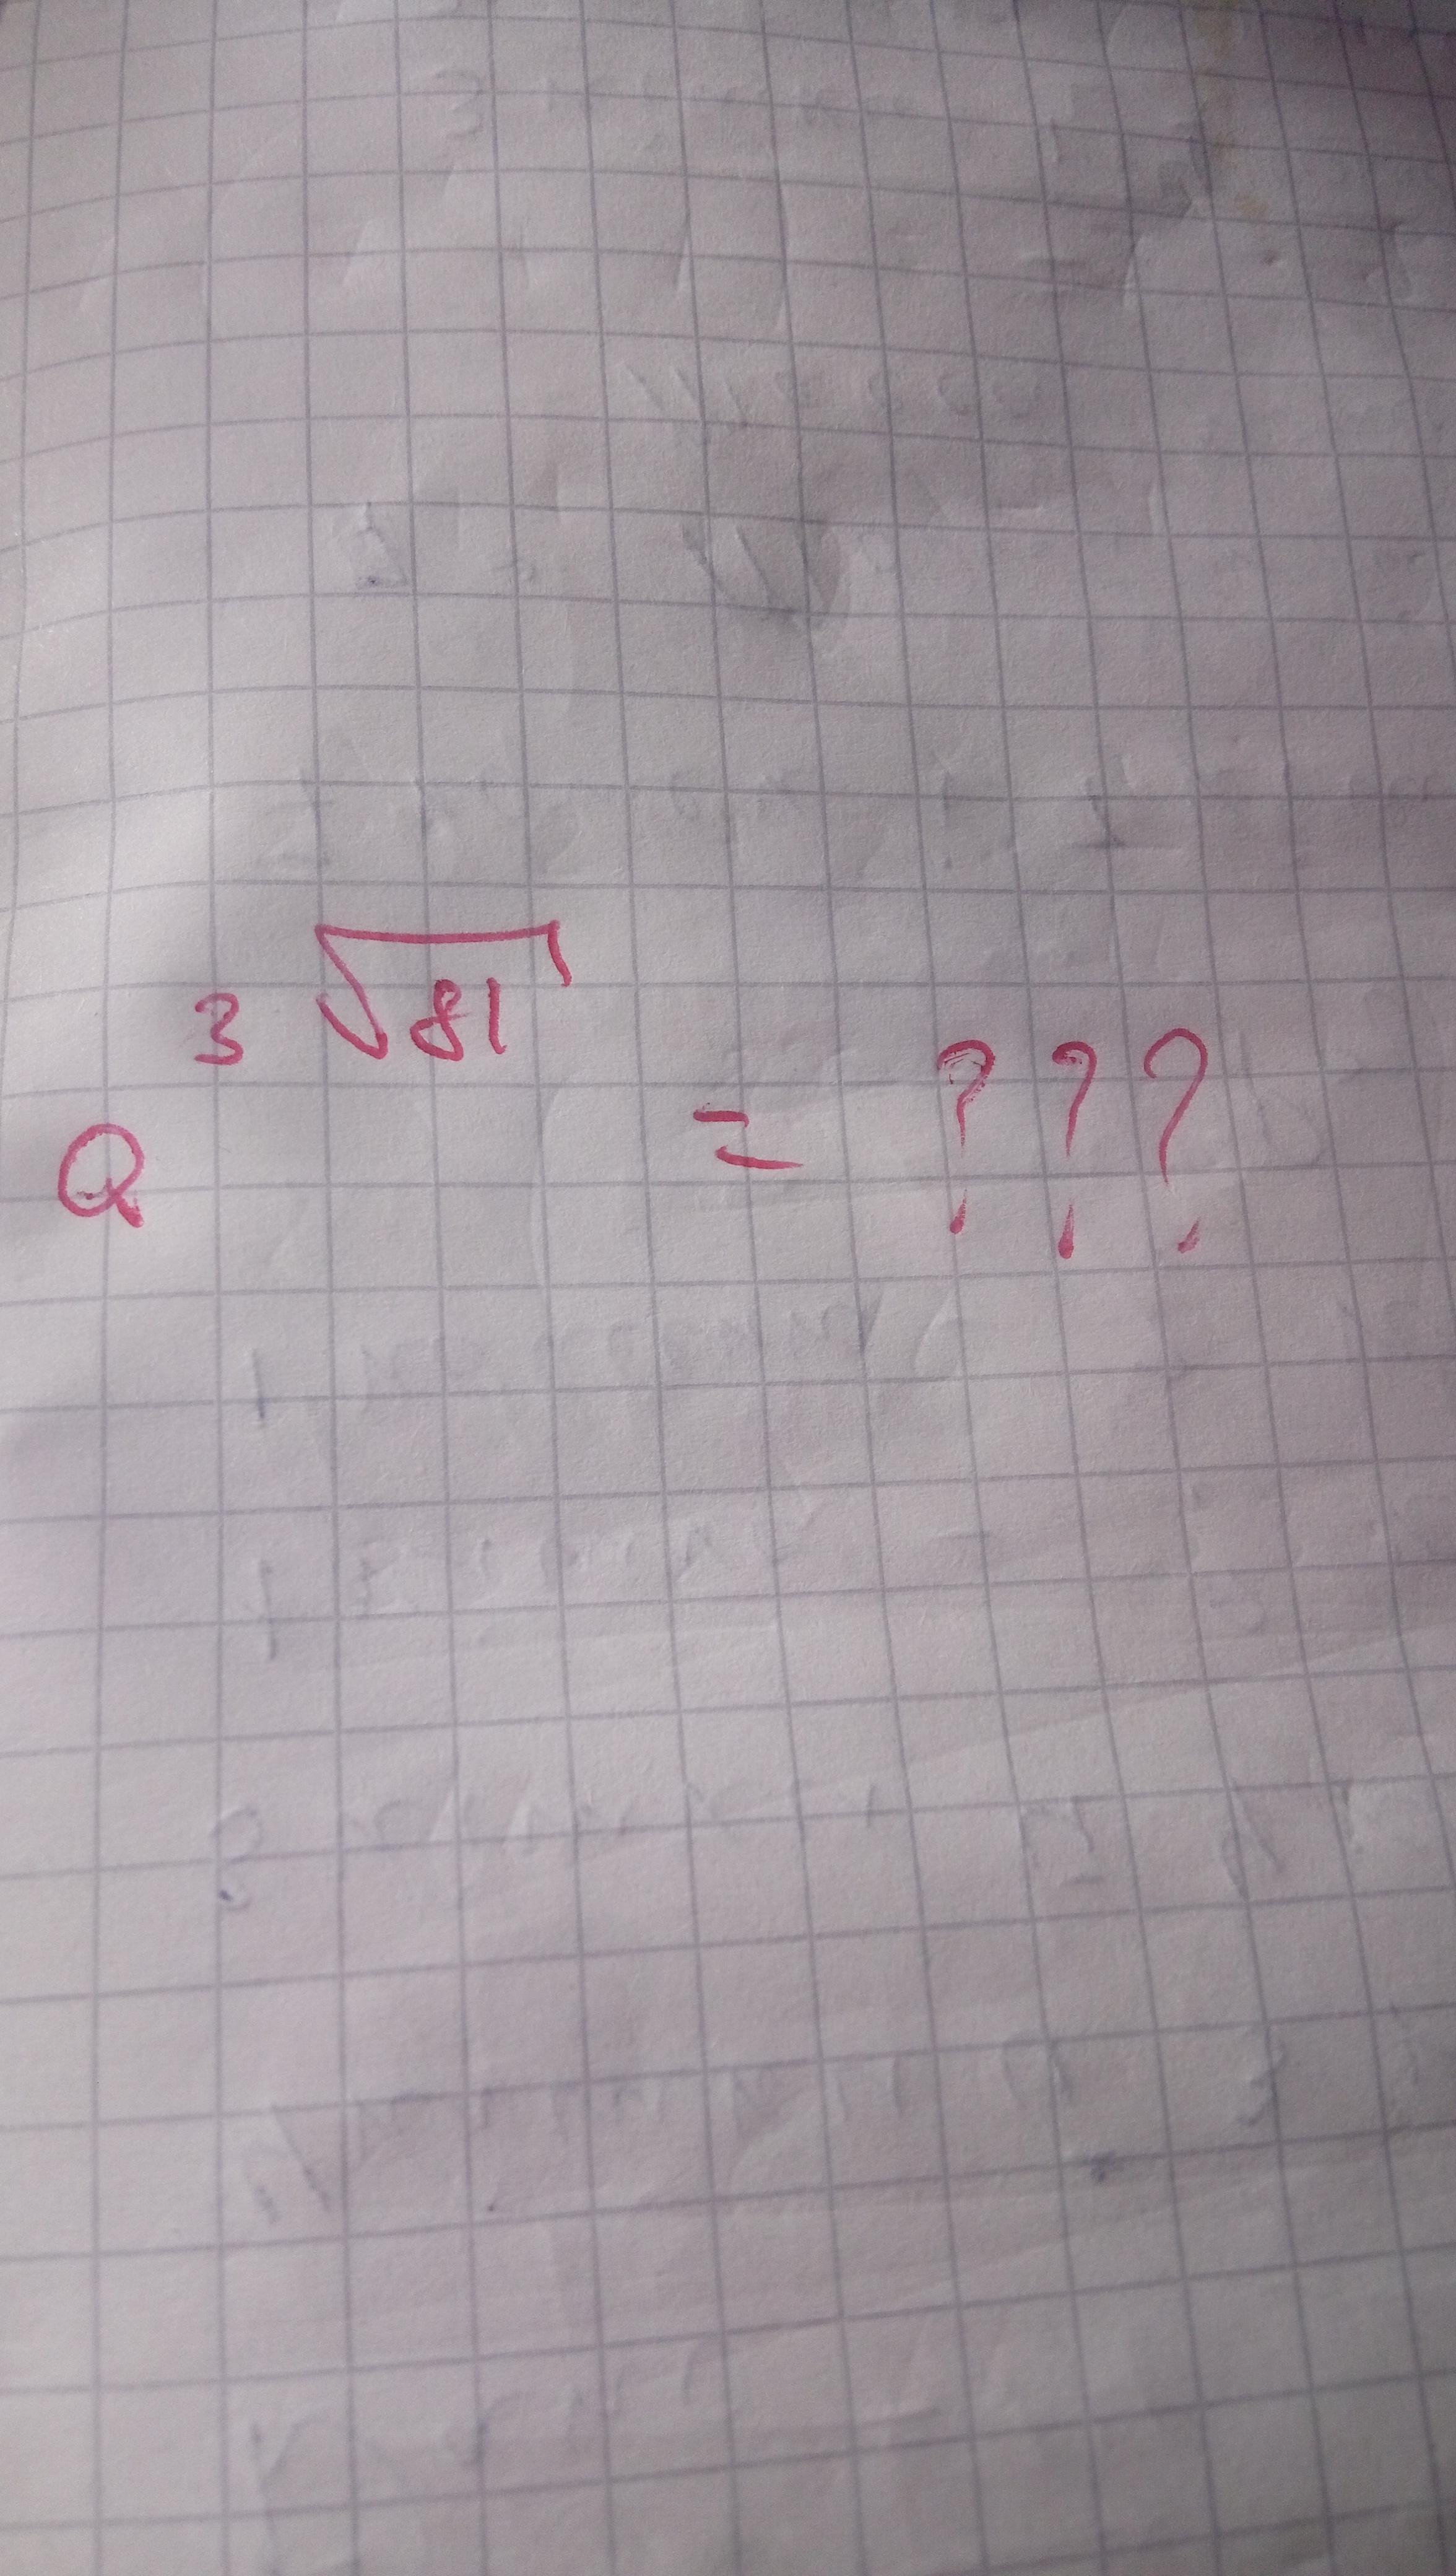 Q 3 √81 = ???